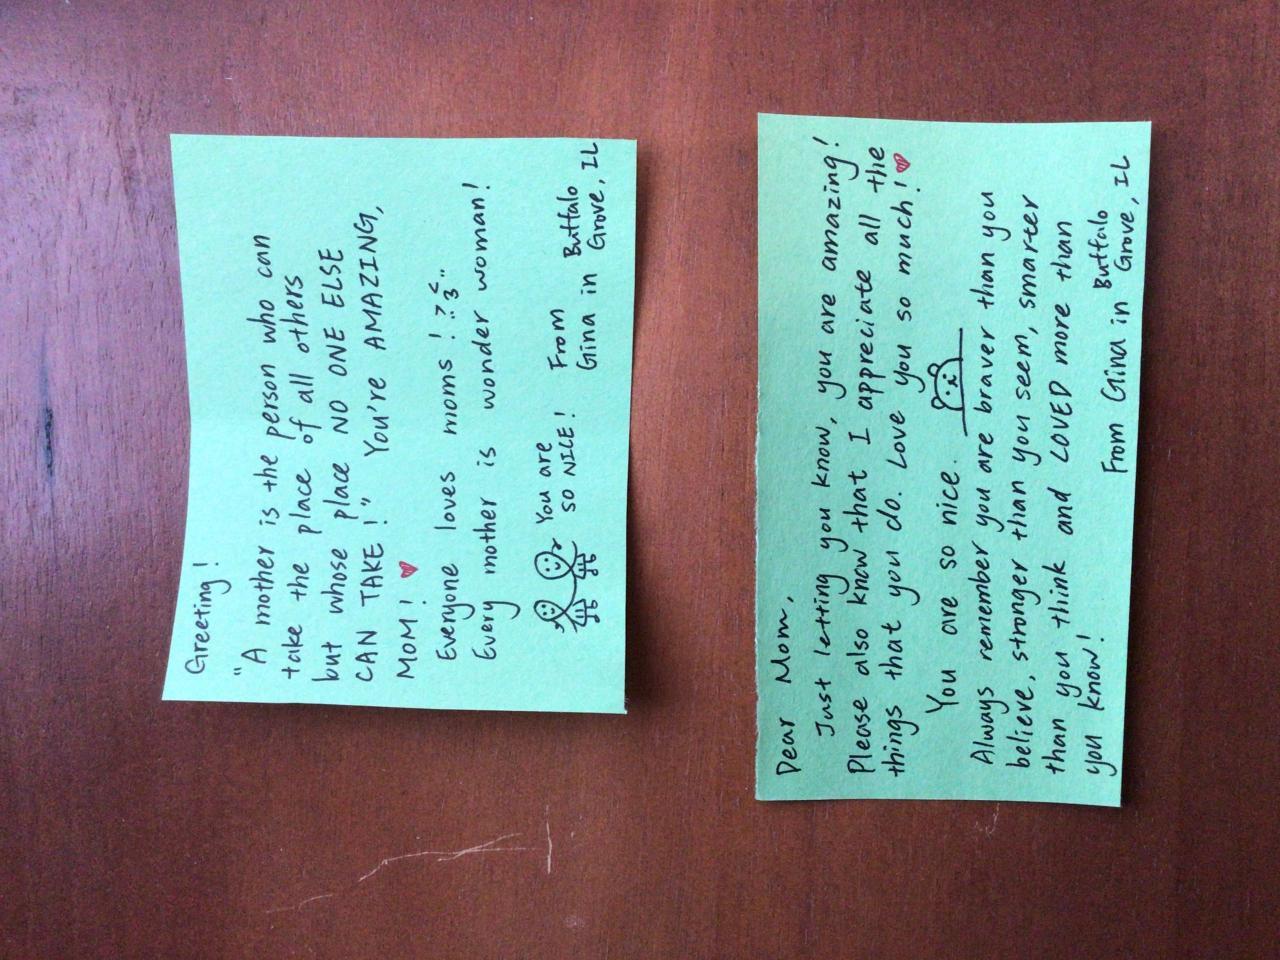 Greeting!
"A mother is the person who can
take the place of all others
but whose place NO ONE ELSE
CAN TAKE!" You're AMAZING,
MOM!
Everyone loves moms!
Every mother is wonder woman!
You are
SO NICE!
From
Gina in Buffalo
Grove, IL
Dear Mom,
Just letting you know, you are amazing!
Please also know that I appreciate all the
things that you do. Love you so much!
You are so nice.
Always remember you are braver than you
believe, stronger than you seem, smarter
than you think and LOVED more than
you know!
From Gina in Buffalo
Grove, IL